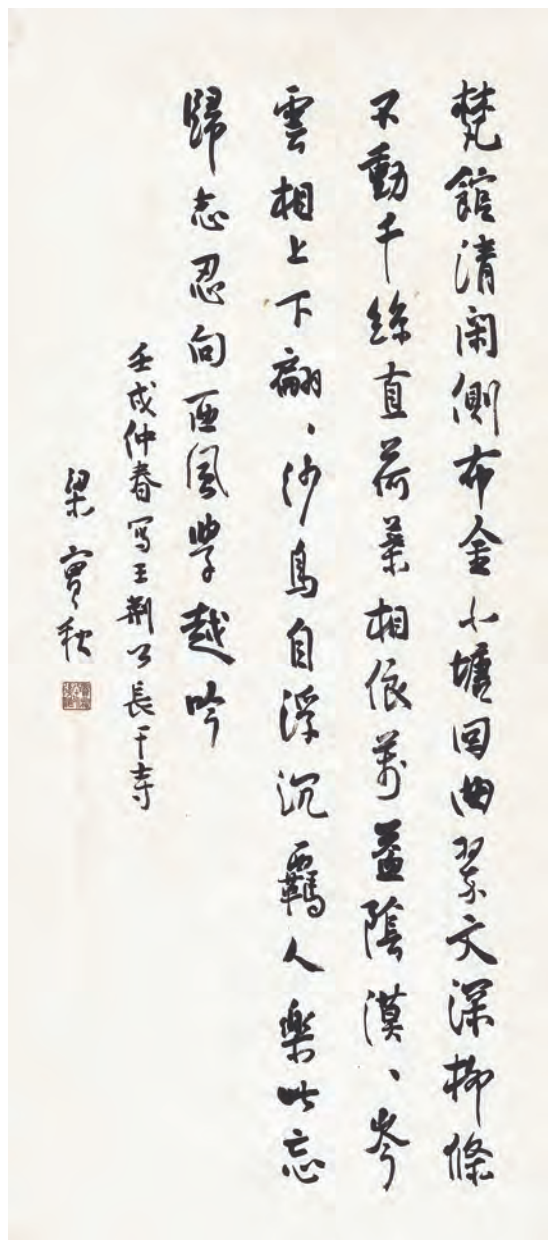 梵館清閑側布金小塘回曲翠文深柳條
不動千絲直荷葉相依萬蓋陰漠、岑
雲相上下翩、沙鳥自浮沉羈人樂此忘
歸志忍向西風學越吟
壬戌仲春寫王荊公長干寺
梁實秋